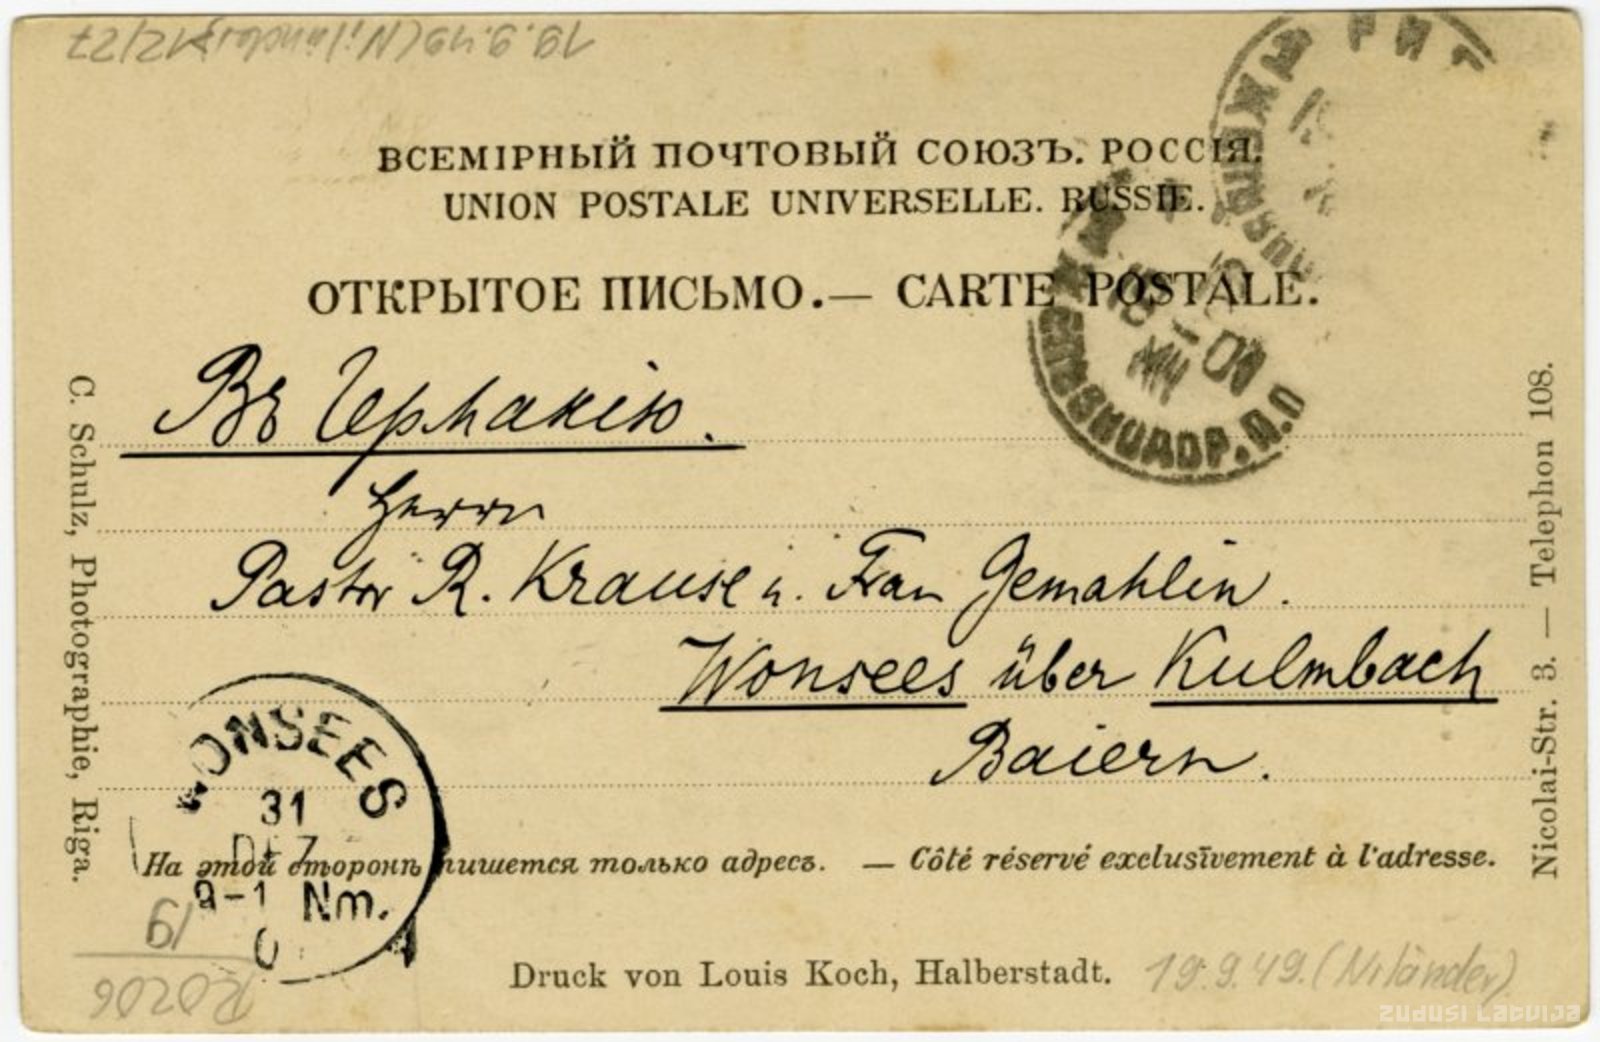 19.9.49 (Niländer) 12/27
ВСЕМІРНЫЙ ПОЧТОВЫЙ СОЮЗЪ. РОССІЯ.
UNION POSTALE UNIVERSELLE. RUSSIE.
ОТКРЫТОЕ ПИСЬМО.— CARTE POSTALE.
Въ Германію.
Herrn
Pastor R. Krause u. Frau Gemahlin.
Wonsees über Kulmbach
Baiern.
C. Schulz, Photographie, Riga.
Nicolai-Str. 3. — Telephon 108.
WONSEES
31
DEZ
9-1 Nm.
0
На этой сторонѣ пишется только адресъ. — Côté réservé exclusivement à l'adresse.
Druck von Louis Koch, Halberstadt.
19.9.49. (Niländer)
19
R0206
ZUDUSI LATVIJA